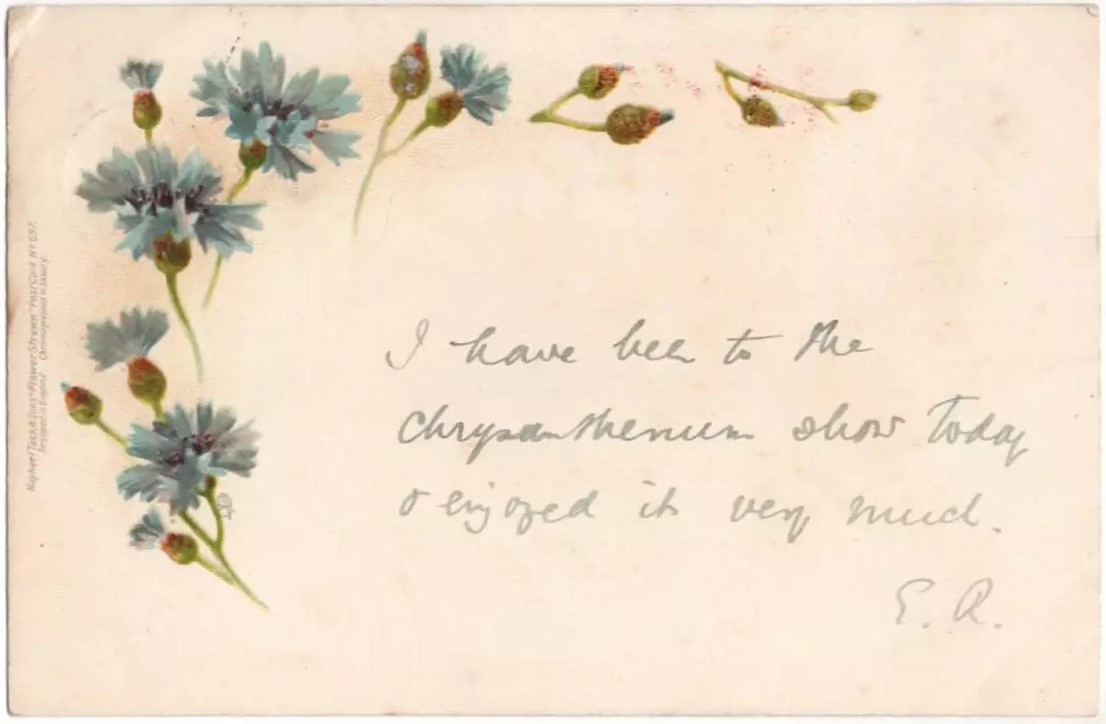 I have been to the
chrysanthemum show today
& enjoyed it very much.
E. R.
Raphael Tuck & Sons "Flower Strewn" Post Card Nº 697.
Designed in England Chromographed in Saxony.